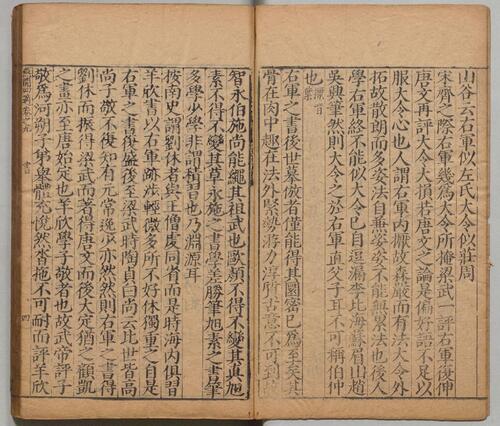 山谷云右軍似左氏大令似莊周
宋齊之際右軍幾為大令所掩梁武一評右軍復伸
唐文再評大令大損若唐文之論是偏好語不足以
服大令心也人謂右軍内厭故森嚴而有法大令外
拓故散朗而多姿法自兼姿姿不能兼法也後人
學右軍終不能似大令已自逗漏李北海蘇眉山趙
吳興筆然則大令之於右軍直父子耳不可稱伯仲
也
右軍之書後世摹倣者僅能得其圓密已為至矣其
骨在肉中趣在法外緊勢游力淳質古意不可到故
智永伯施尚能繩其祖武也歐顏不得不變其真旭
素不得不變其草永施之書學差勝筆旭素之書筆
多學少學非謂積習也乃淵源耳
按南史謂劉休者與王僧虔同省而是時海内俱習
羊欣書以右軍跡疾輕微多所不好休獨重之自是
右軍之書復盛後至梁武時陶貞白尚云比世皆高
尚子敬不復知有元常逸少亦然然則右軍之書得
劉休而振得梁武而著得唐文而後大定猶之顧凱
之畫亦至唐始定也羊欣學子敬者也故武帝評子
敬為河朔子弟舉體充悅然沓拖不可耐而評羊欣
書
四